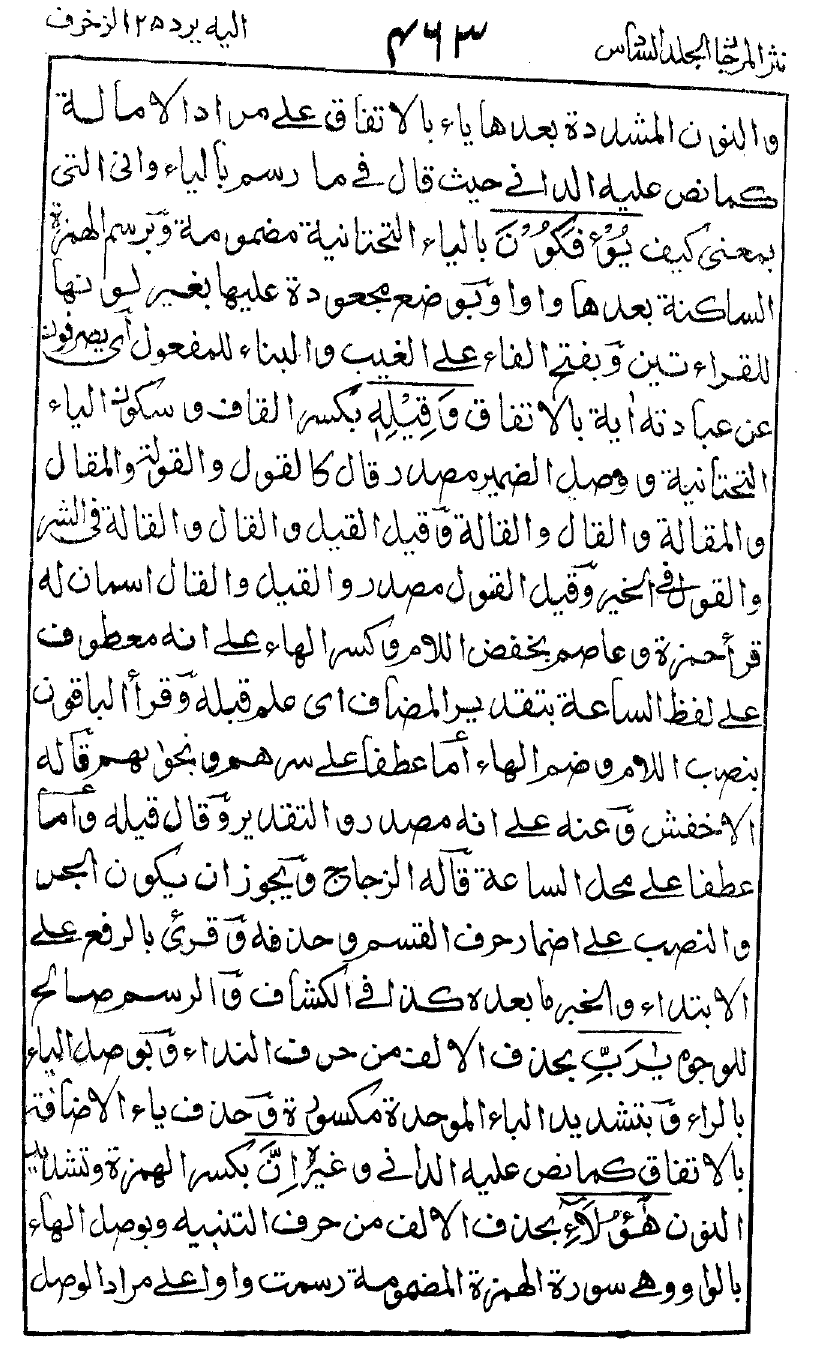 نثر المرجان الجلد السادس
٤٦٣
اليه يرد ٢٥ الزخرف
والنون المشددة بعدها ياء بالاتفاق على مراد الامالة
كما نص عليه الداني حيث قال في ما رسم بالياء وانى التي
بمعنى كيف يُؤْفَكُوْنَ بالياء التحتانية مضمومة وبرسم الهمزة
الساكنة بعدها واوا وبوضع مجعودة عليها بغير لونها
للقراءتين وبفتح الفاء على الغيب والبناء للمفعول أى يصرفون
عن عبادته أية بالاتفاق وَقِيْلِهٖ بكسر القاف وسكون الياء
التحتانية و وصل الضمير مصدر قال كالقول والقولة والمقال
والمقالة والقال والقالة وقيل القيل والقال والقالة في الشر
والقول في الخير وقيل القول مصدر والقيل والقال اسمان له
قرأ حمزة وعاصم بخفض اللام وكسر الهاء على انه معطوف
على لفظ الساعة بتقدير المضاف اى علم قيله وقرأ الباقون
بنصب اللام وضم الهاء أما عطفا على سرهم ونجوٰىهم قاله
الاخفش وعنه على انه مصدر والتقدير وقال قيله وأما
عطفا على محل الساعة قاله الزجاج ويجوز ان يكون الجر
والنصب على اضمار حرف القسم وحذفه وقرئ بالرفع على
الابتداء والخبر ما بعده كذا في الكشاف والرسم صالح
للوجوه يٰرَبِّ بحذف الالف من حرف النداء وبوصل الياء
بالراء وبتشديد الباء الموحدة مكسورة وحذف ياء الاضافة
بالاتفاق كما نص عليه الداني وغيره اِنَّ بكسر الهمزة وتشديد
النون هٰٓؤُلَآءِ بحذف الالف من حرف التنبيه وبوصل الهاء
بالواو وهي سورة الهمزة المضمومة رسمت واوا على مراد الوصل